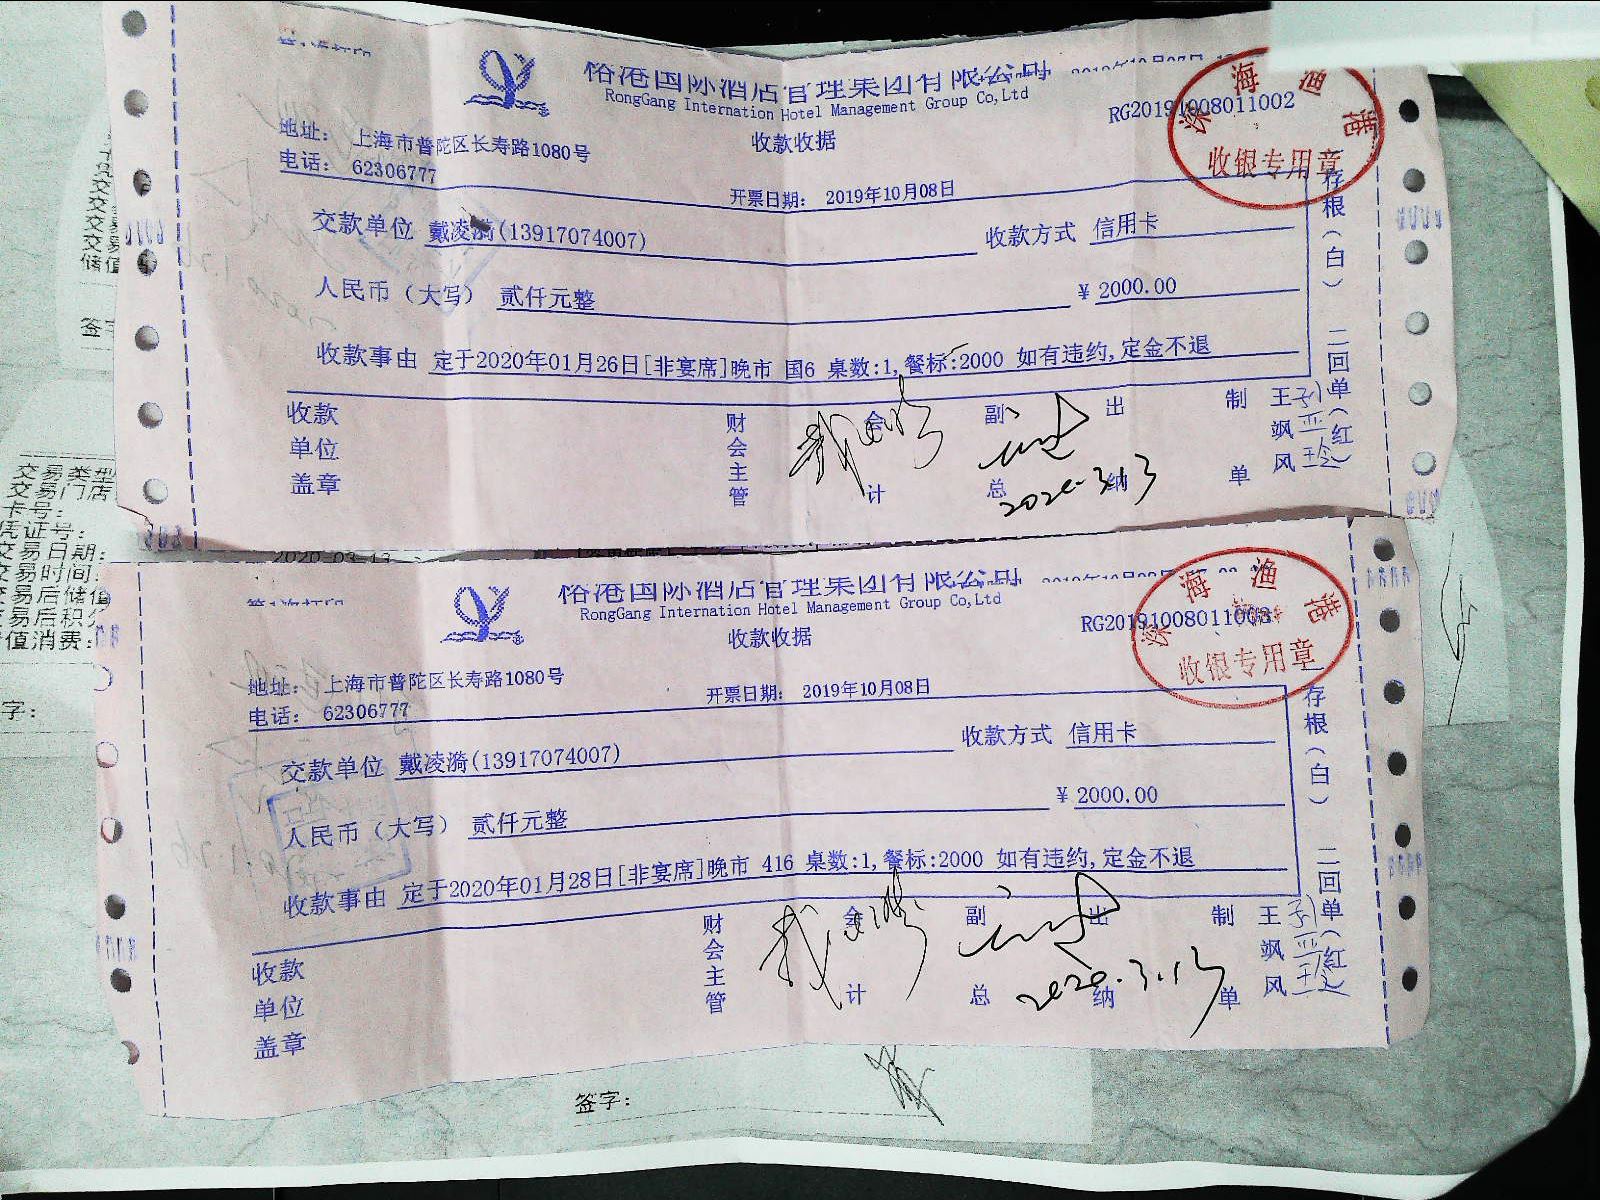 国际酒店管理集团有限公司
RongGang International Hotel Management Group Co,Ltd
RG20191008011002
收款收据
深海渔港
收银专用章
地址: 上海市普陀区长寿路1080号
电话: 62306777
开票日期: 2019年10月08日
交款单位 戴凌漪(13917074007) 收款方式 信用卡
人民币（大写） 贰仟元整 ¥ 2000.00
收款事由 定于2020年01月26日[非宴席]晚市 国6 桌数:1,餐标:2000 如有违约,定金不退
存根(白) 二回单(红)
收款单位盖章 财会主管 会计 副总 出纳 制单 王飒风
2020.3.13
交易类型
交易门店
卡号:
凭证号:
交易日期:
交易时间:
交易后储值
交易后积分
值消费:
字:
国际酒店管理集团有限公司
RongGang International Hotel Management Group Co,Ltd
收款收据
深海渔港
收银专用章
地址: 上海市普陀区长寿路1080号
电话: 62306777
开票日期: 2019年10月08日
交款单位 戴凌漪(13917074007) 收款方式 信用卡
人民币（大写） 贰仟元整 ¥ 2000.00
收款事由 定于2020年01月28日[非宴席]晚市 416 桌数:1,餐标:2000 如有违约,定金不退
存根(白) 二回单(红)
收款单位盖章 财会主管 会计 副总 出纳 制单 王飒风
2020.3.13
签字: